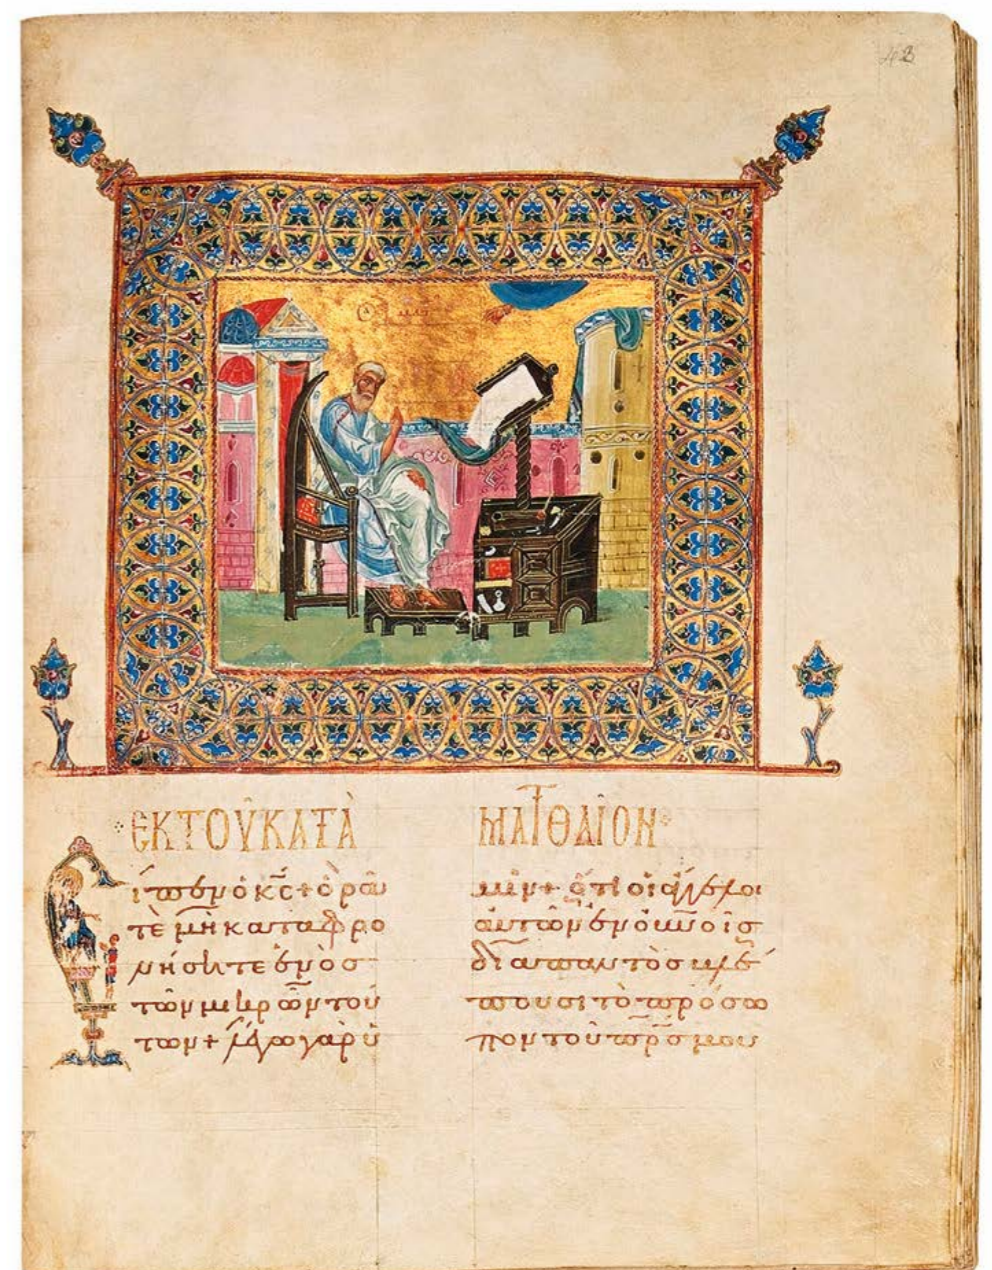 43
ΕΚ ΤΟΥ̂ ΚΑΤᾺ
ΜΑΤΘΑῖΟΝ
εἶπεν ὁ κ̅ς̅ + ὁρᾶ
τε μὴ καταφρο
νήσητε ἑνὸς
τῶν μικρῶν τού
των + λέγω γὰρ ὑ
μῖν + ὅτι οἱ ἄγγελοι
αὐτῶν ἐν ο̅υ̅ν̅οις
διαπαντὸς βλέ
πουσι τὸ πρόσω
πον τοῦ π̅ρ̅ς̅ μου